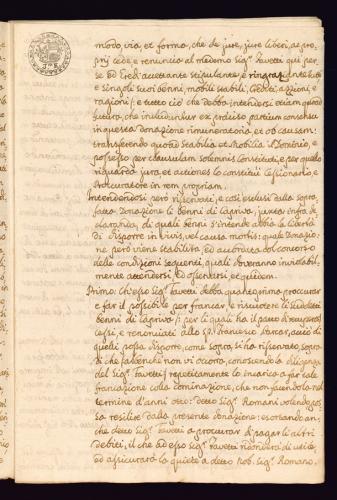 modo, via, et forma, che de jure, jure liberi, ac pro-
prij cede e renuncia al medemo Sig.r Favetti qui per
se ed Eredi accettante stipulante, e ringraziante tutti
e singoli suoi benni, mobili stabili, Crediti, azzioni, e
ragioni; e tutto ciò che debba intendersi etiam quoad
futura, che includuntur ex præviso partium consensu
in questa donazione rimuneratoria et ob causam:
transferendo quoad Stabilia, et Mobilia il Dominio, e
possesso per clausulam solemnis Constituti, e per quello
riguarda jura, et actiones lo constituì Cessionario, e
Procuratore in rem propriam.
Intendendosi però riservati, e così esclusi dalla sopra
fatta Donazione li benni di Capriva, juxta infra de-
claranda, di quali benni s'intende abbia la libertà
di disporre in vivis, vel causa mortis: quale Donazio-
ne però viene stabilita ed accordata col concorso
delle condizioni sequenti, quali doveranno inviolabil-
mente attendersi, ed osservarsi, et quidem.
Primo: Ch'esso Sig.r Favetti debba quantoprima procurar
e far il possibile per francar, e riscuotere li sudetti
benni di Capriva; per li quali ha il patto di ricupera
cessi, e renunciati allo Sp. Francesco Starcar, acciò di
quelli possa disporre, come sopra, si ha riservato, sopra
di che sebenche non vi occorre, conoscendo la diligenza
del Sig.r Favetti, repetitamente lo incarica a far tale
francazione colla cominazione, che non facendola nel
termine d'anni otto: detto Sig.r Romani volendo, pos-
sa resilire dalla presente donazione: esortando an-
che detto Sig.r Favetti a procurar di pagar li altri
debiti, il che ad esso Sig.r Favetti ridondarà di utile,
ed assicurarà la quiete a detto Nob. Sig.r Romano.